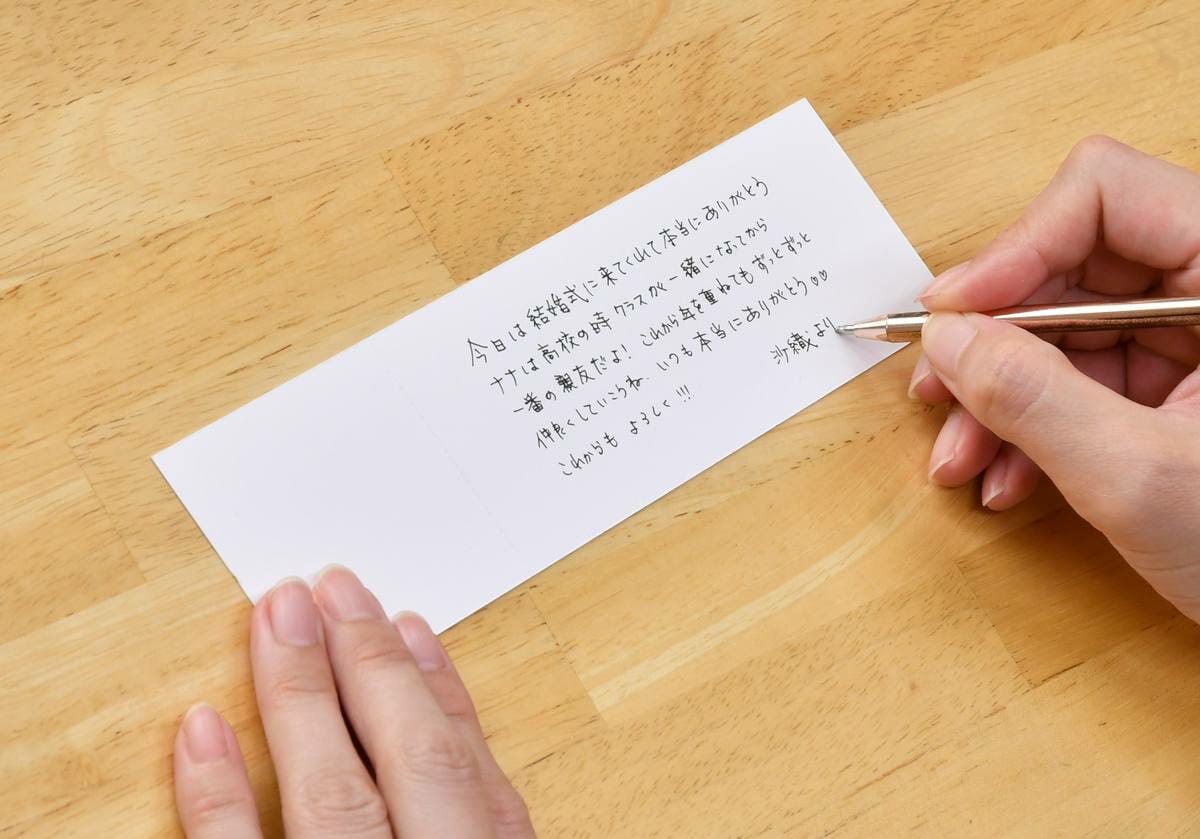 今日は結婚式に来てくれて本当にありがとう
ナナは高校の時クラスが一緒になってから
一番の親友だよ! これから年を重ねてもずっとずっと
仲良くしていこうね。いつも本当にありがとう♡♡
これからもよろしく!!!
沙織より